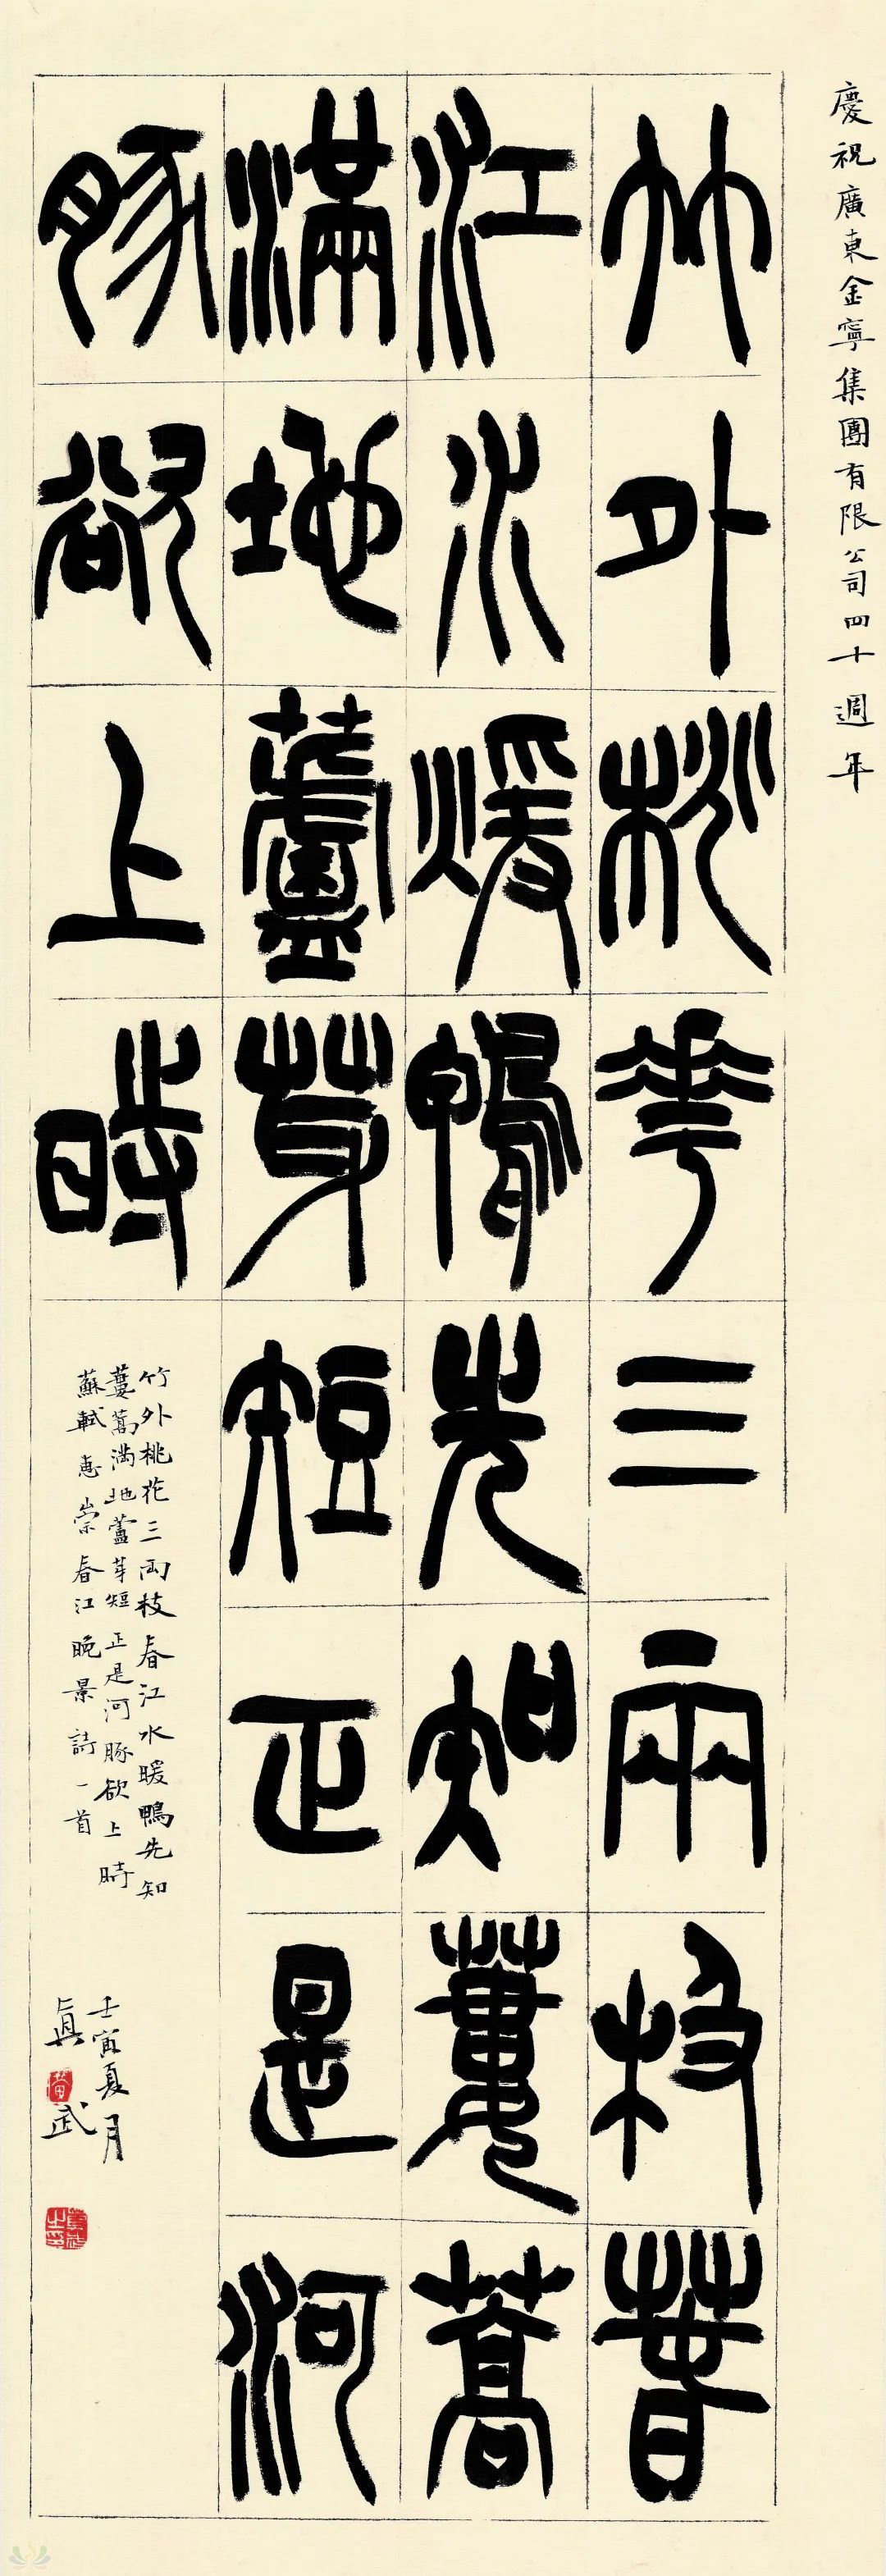 慶祝廣東金寧集團有限公司四十週年
竹外桃華三兩枝春
江水煖鴨先知蔞蒿
滿地蘆芽短正是河
豚欲上時
竹外桃花三兩枝春江水暖鴨先知
蔞蒿滿地蘆芽短正是河豚欲上時
蘇軾惠崇春江晚景詩一首
壬寅夏月
真武